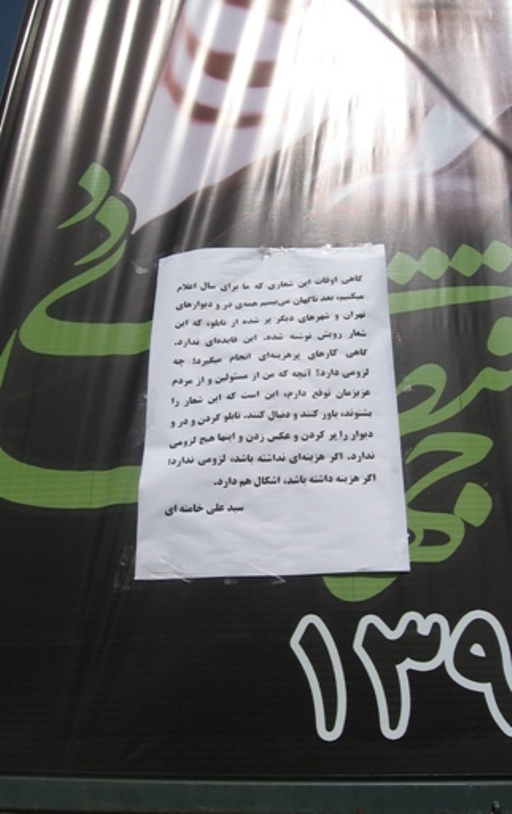 گاهی اوقات این شعاری که ما برای سال اعلام
میکنیم، بعد ناگهان می‌بینیم همه‌ی در و دیوارهای
تهران و شهرهای دیگر پر شده از تابلو، که این
شعار رویش نوشته شده. این فایده‌ای ندارد.
گاهی کارهای پرهزینه‌ای انجام میگیرد؛ چه
لزومی دارد؟ آنچه که من از مسئولین و از مردم
عزیزمان توقع دارم، این است که این شعار را
بشنوند، باور کنند و دنبال کنند. تابلو کردن و در و
دیوار را پر کردن و عکس زدن و اینها هیچ لزومی
ندارد. اگر هزینه‌ای نداشته باشد، لزومی ندارد؛
اگر هزینه داشته باشد، اشکال هم دارد.
سید علی خامنه ای
۱۳۹